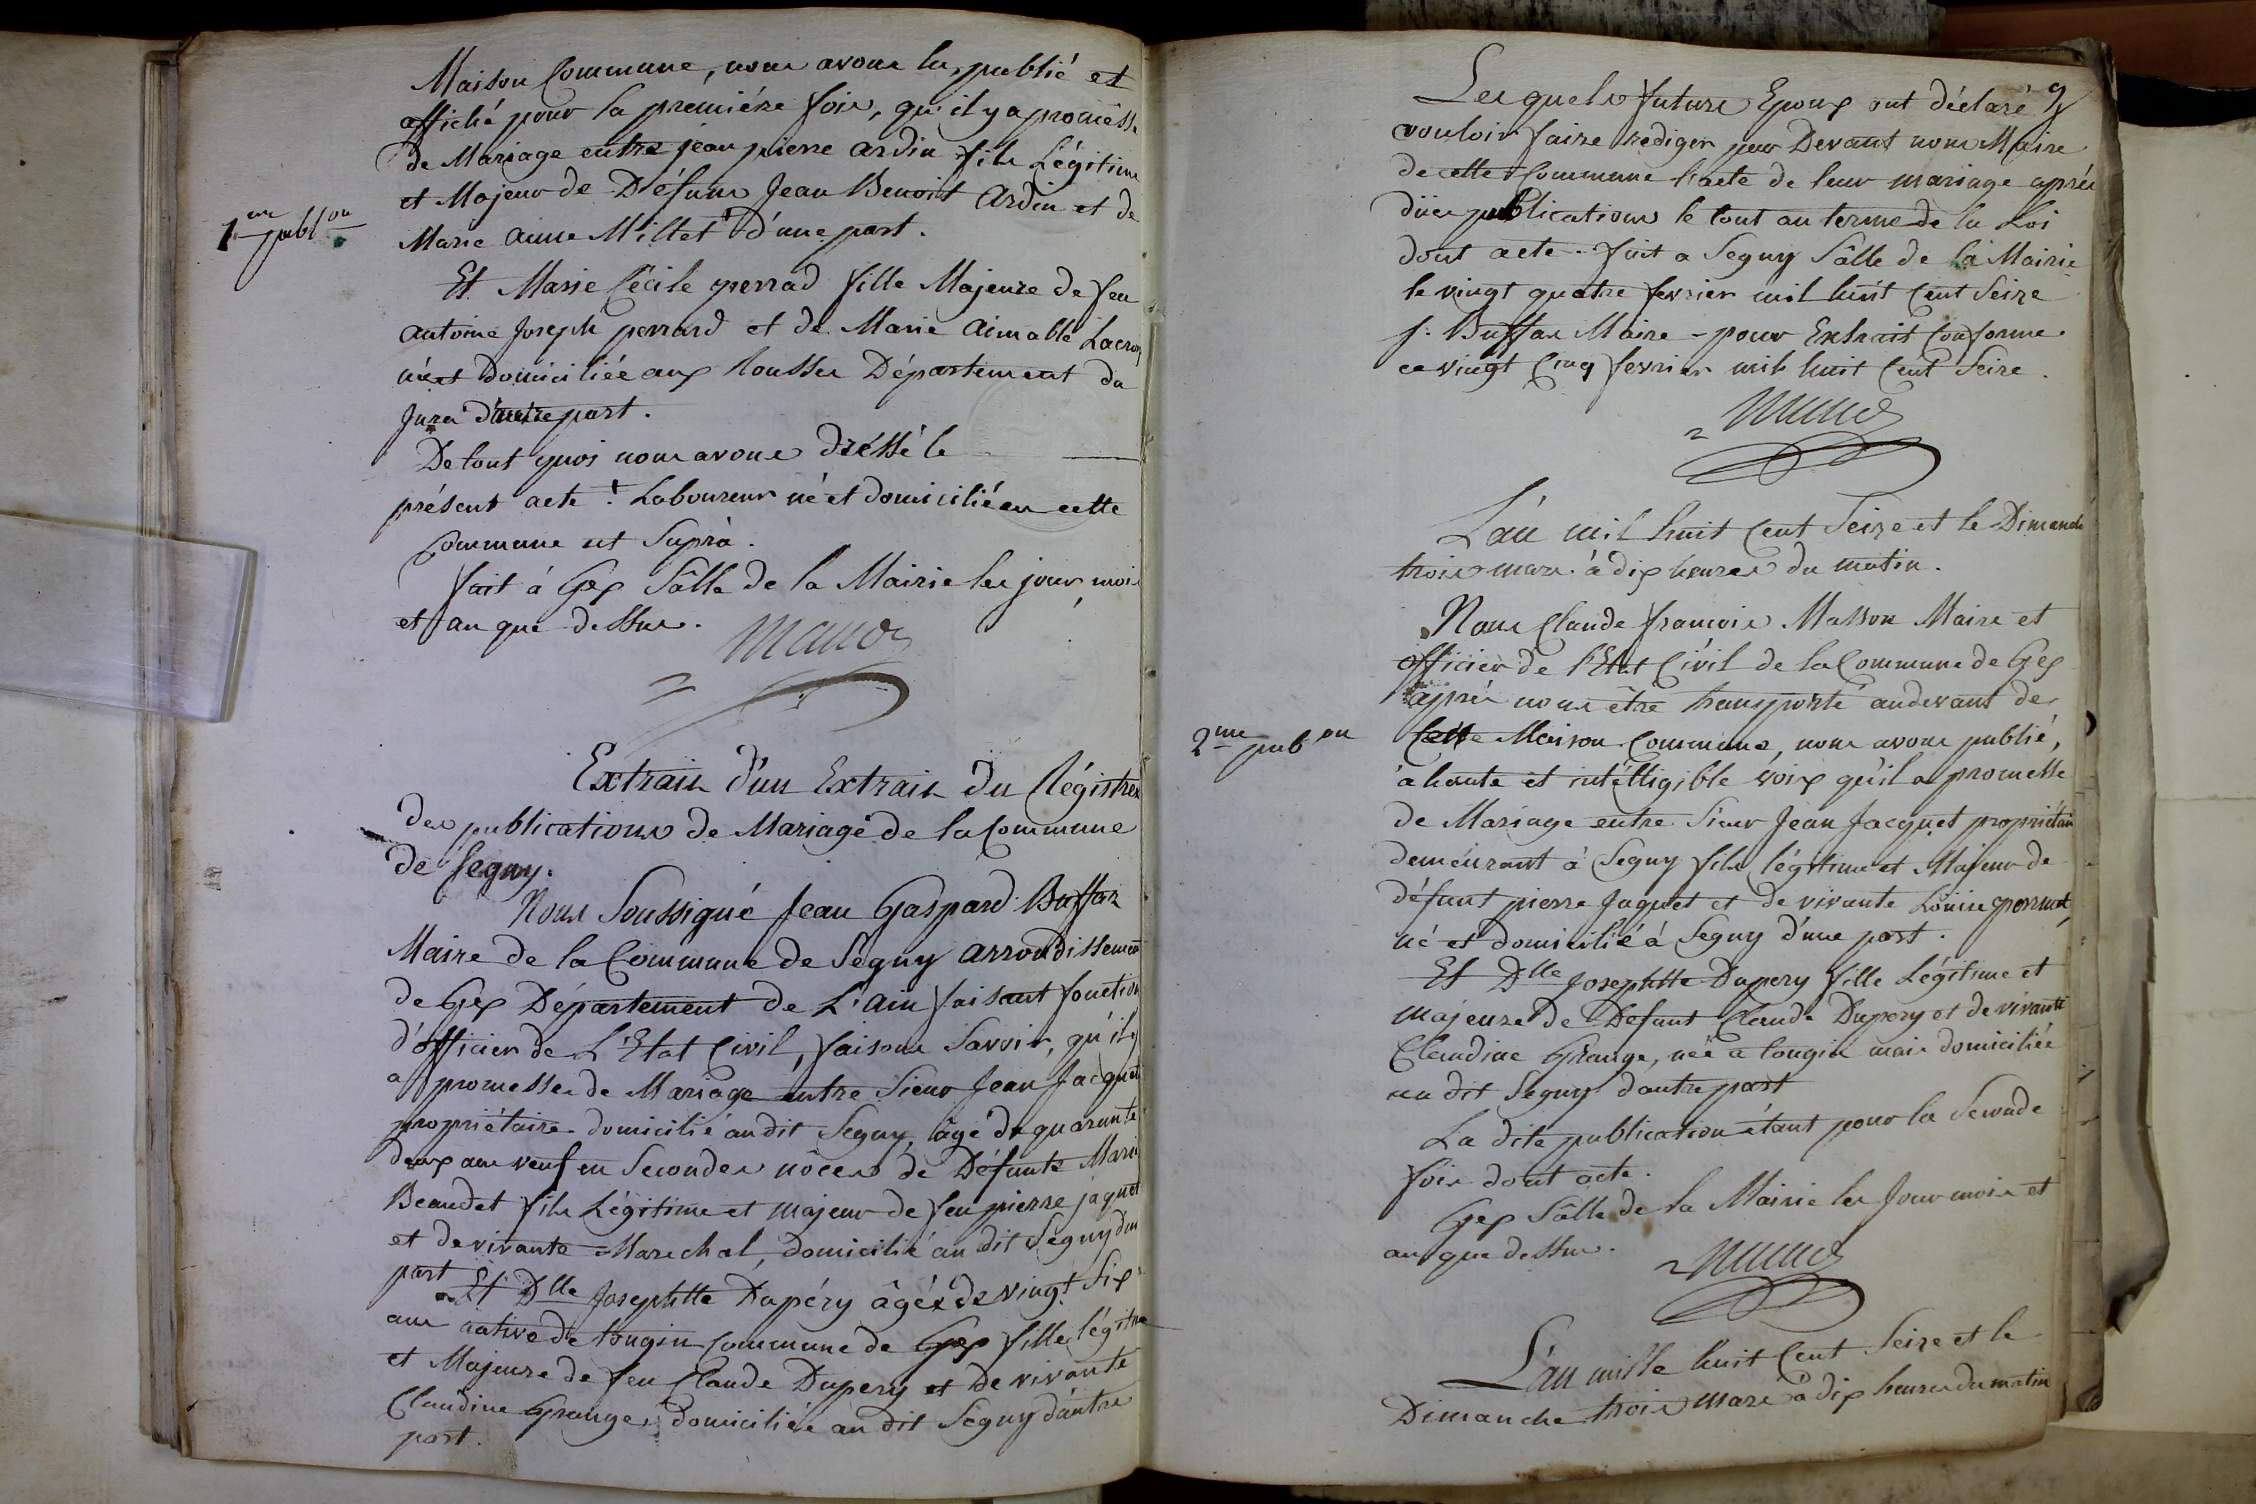 Maison Commune, nous avons lu, publié et
affiché pour la première fois, qu'il y a promèsse
de Mariage entre jean pierre ardin fils Légitime
et Majeur de Défunt Jean Benoit Ardin et de
1ere publ.on
Marie aime Millet d'une part.
Et Marie Cécile perrad fille Majeure de feu
antoine Joseph perrard et de Marie aimable Lacroix
née et domiciliée aux Rousses Département du
Jura d'autre part.
De tout quoi nous avons dréssé le
présent acte : Laboureur né et domicilié en cette
Commune ut Suprà.
fait à Gex Sâlle de la Mairie les jour, mois
et an que dessus.
Extrait d'un Extrait du Régistre
des publications de Mariage de la Commune
de Segny.
Nous Soussigné Jean Gaspard Buffaz
Maire de la Commune de Ségny arrondissement
de Gex Département de L'ain faisant fonction
d'officier de L'Etat Civil, faisons Savoir, qu'il y
a promesse de Mariage entre Sieur Jean Jacquet
propriétaire domicilié au dit Segny, âgé de quarante
deux ans veuf en Secondes nôces de Défunte Marie
Beaudet fils Légitime et majeur de feu pierre jaquet
et de vivante Marechal, domicilié au dit Segny d'un
part
Et Dlle Josephtte Dupéry âgée de vingt Six
ans native de tougin Commune de Gex fille légitime
et Majeure de feu Claude Dupery et de vivante
Claudine Grange, domiciliée au dit Segny d'autre
part.
9
Lesquels future Epoux ont déclaré
vouloir faire rédiger par Devant nous Maire
de cette Commune l'acte de leur mariage après
dües publications le tout au terme de la Loi
dont acte. fait a Segny Sâlle de la Mairie
le vingt quatre fevrier mil huit Cent Seize
J. Buffaz Maire - pour Extrait Conforme
ce vingt Cinq fevrier mil huit Cent Seize.
L'an mil huit Cent Seize et le Dimanche
trois mars à dix heures du matin.
Nous Claude françois Masson Maire et
officier de l'Etat Civil de la Commune de Gex
après nous être transporté audevant de
2me pub.on
Cette Maison Commune, nous avons publié,
à haute et intélligible voix qu'il a promesse
de Mariage entre Sieur Jean Jacquet propriétaire
demeurant à Segny fils légitime et Majeur de
défunt pierre Jaquet et de vivante Louise
né et domicilié à Segny d'une part.
Et Dlle Josephtte Dupery fille Légitime et
majeure de Défunt Claude Dupery et de vivante
Claudine Grange, née a tougin mais domiciliée
au dit Segny d'autre part
La dite publication étant pour la Seconde
fois dont acte.
Gex Sâlle de la Mairie les Jour mois et
an que dessus.
L'an mille huit Cent Seize et le
Dimanche trois mars à dix heures du matin